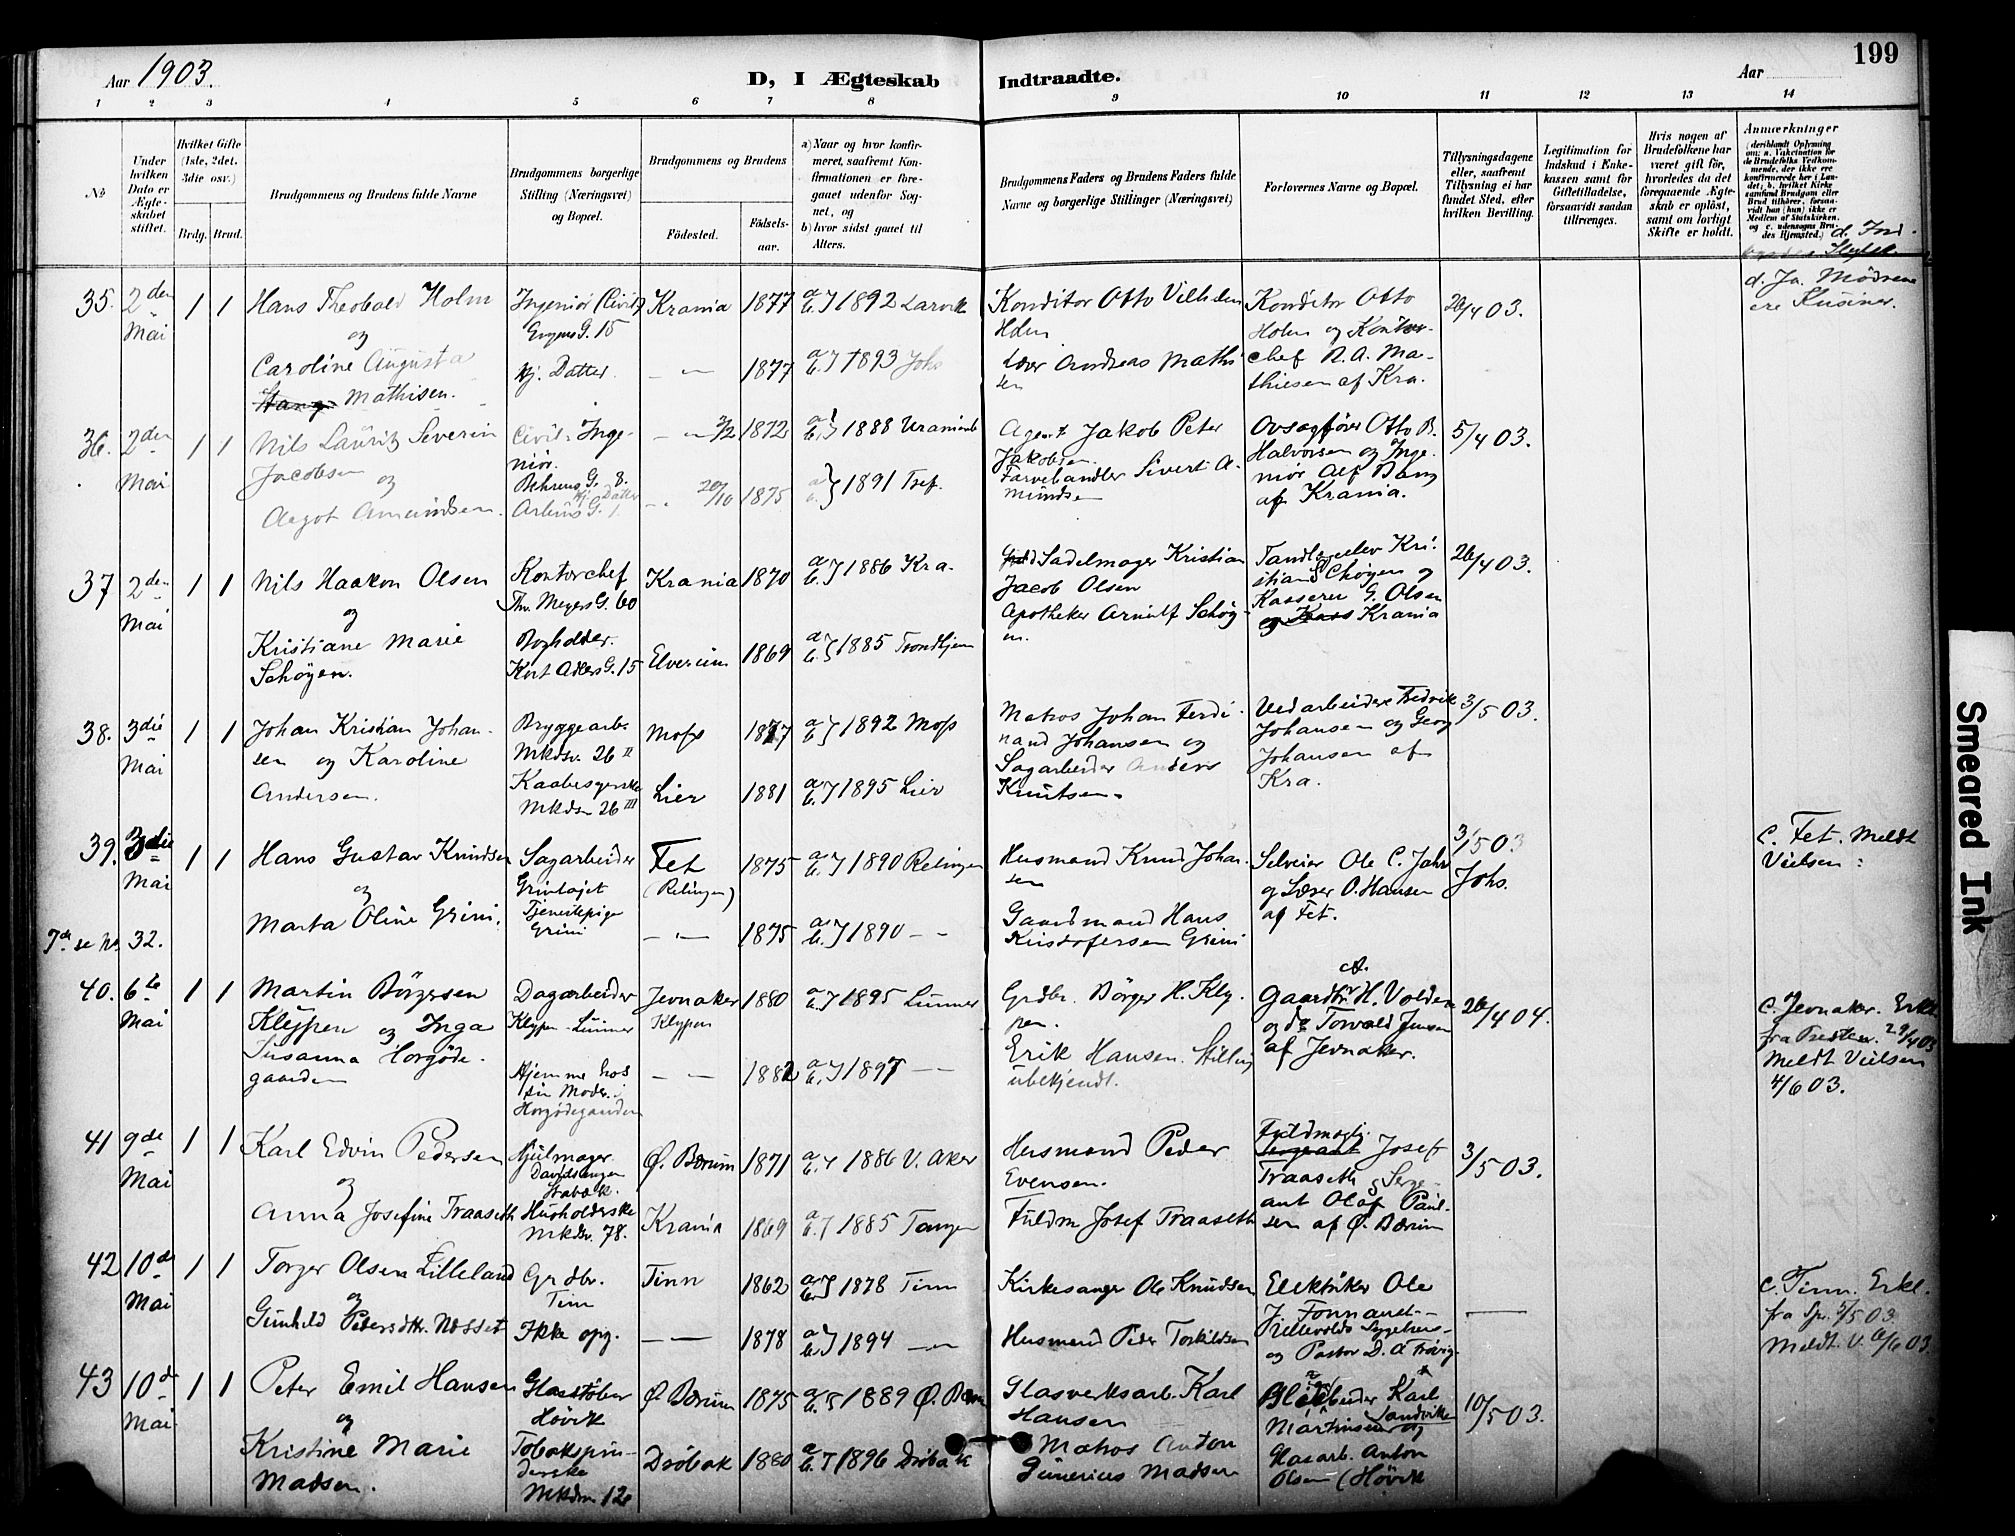 Aar 1903.
D, I Ægteskab Indtraadte.
Aar
199
1 2 3 4 5 6 7 8 9 10 11 12 13 14
No
Under hvilken Dato er Ægteskabet stiftet.
Hvilket Gifte (1ste, 2det, 3die osv.)
Brdg. Brud.
Brudgommens og Brudens fulde Navne
Brudgommens borgerlige Stilling (Næringsvei) og Bopæl.
Brudgommens og Brudens
Fødested.
Fødsels-aar.
a) Naar og hvor konfirmeret, saafremt Konfirmationen er foregaaet udenfor Sognet, og
b) hvor sidst gaaet til Alters.
Brudgommens Faders og Brudens Faders fulde Navne og borgerlige Stillinger (Næringsvei)
Forlovernes Navne og Bopæl.
Tillysningsdagene eller, saafremt Tillysning ei har fundet Sted, efter hvilken Bevilling.
Legitimation for Indskud i Enkekassen samt for Giftetilladelse, forsaavidt saadan tiltrænges.
Hvis nogen af Brudefolkene har været gift før, hvorledes da det foregaaende Ægteskab er opløst, samt om lovligt Skifte er holdt.
Anmærkninger
35. 2den Mai 1 1
Hans Theobald Holm
og
Caroline Augusta
Stang Mathisen.
Ingeniør (Civil)
G. 15
hj. Datter
Krania 1877 a b } 1892 Larvik
— " — 1877 a b } 1893 Johs
Konditor Otto Vilhelm
Holm
Andreas Mathi
sen
Konditor Otto
Holm og Kontor-
chef R. A. Ma-
thiesen af Kra.
26/4 03.
d. Ja. Mødrene
ere Kusiner.
36. 2den Mai 1 1
Nils Lauritz Severin
Jacobsen
og
Aagot Amundsen.
Civil-Inge-
niør.
Behrens G. 8.
hj. Datter
Arbins G. 1
— " — 1872 a b } 1888 Uranienb
20/10 1875 a b } 1891 Tref.
Agent Jakob Peter
Jakobsen.
Farvehandler Sivert A-
mundsen
Ovsagfører Otto B.
Halvorsen og Inge-
niør Alf Bang
af Krania.
5/4 03.
37 2den Mai 1 1
Nils Haakon Olsen
og
Kristiane Marie
Schøyen.
Kontorchef
Thv. Meyers G. 60
Bogholder.
Kort Adlers G. 15
Krania 1870 a b } 1886 Kra.
Elverum 1869 a b } 1885 Trondhjem
Sadelmager Kristian
Jacob Olsen
Apotheker Arnulf Schøy-
en.
Kri-
stian Schøyen og
Kasserer G. Olsen
Krania
26/4 03.
38. 3die Mai 1 1
Johan Kristian Johan-
sen og Karoline
Andersen.
Bryggearb.
Mkdsv. 26 II
Kaabesyerske
Mkdsv 26 III
Moss 1877 a b } 1892 Moss
Lier 1881 a b } 1895 Lier
Matros Johan Ferdi-
nand Johansen og
Sagarbeider Anders
Knutsen.
Vedarbeider Fredrik
Johansen og Georg
Johansen af
Kra.
3/5 03.
39. 3die Mai 1 1
Hans Gustav Knudsen
og
Marta Oline Grini.
Sagarbeider
Tjenestepige
Grini
Fet
(Relingen)
1875 a b } 1890 Relingen
— " — 1875 a b } 1890 — —
Husmand Knud Johan-
sen
Gaardmand Hans
Kristofersen Grini
Selveier Ole C. Jahr
og Lærer O. Hansen
af Fet.
3/5 03
Johs.
C. Fet. Meldt
Vielsen
7de se No 32.
40. 6te Mai 1 1
Martin Børgersen
Kleppen og Inga
Susanna Horgøde-
gaarden
Dagarbeider
Klypen Lunner
Hjemme hos
sin Moder
Horgødegaarden
Jevnaker
Klypen
1880 a b } 1895 Lunner
— — 1882 a b } 1897 — —
Grdbr. Børger H. Kly-
pen.
Erik Hansen. Stilling
ubekjendt.
Gaardbr H. Volden
og do Torvald Jensen
af Jevnaker.
26/4 04.
C. Jevnaker. Erkl.
fra Presten 29/4 03
Meldt Vielsen
4/6 03.
41 9de Mai 1 1
Karl Edvin Pedersen
og
Anna Josefine Traaseth
Hjulmager
Stabæk.
Husholderske
Mkdsv. 78.
Ø. Bærum 1871 1886 V. Aker
Krania 1869 1885 Tangen
Husmand Peder
Evensen.
Fuldm Josef Traaseth
Fuldmægtig
Sergeant Josef
Traaseth og Serge-
ant Olaf Paul-
sen af Ø. Bærum
3/5 03.
42 10de Mai 1 1
Torger Olsen Lilleland
og
Gunhild Pedersdtr. Nesset
Grdbr.
Tinn
Ikke opg.
Tinn 1862 1878 Tinn
— — 1878 a b } 1894 — " —
Kirkesanger Ole Knudsen
Husmand Peder Torkildsen
Elektriker Ole
J. Fonnaaet-
og Pastor D. A. Frøvig
—
C. Tinn. Erkl.
fra Spr. 5/5 03.
Meldt. V. 6/6 03.
43 10de Mai 1 1
Peter Emil Hansen
og
Kristine Marie
Madsen.
Glasstøber
Høvik
Tobakspin-
derske
Mkdsv. 12
Ø. Bærum 1875 1889 Ø. Bærum
Drøbak 1880 1896 Drøbak
Glasverksarb. Karl
Hansen
Matros Anton
Gunerius Madsen
Karl
Martinsen Sandviken og
Glasarb. Anton
Olsen (Høvik
10/5 03.
Smeared Ink